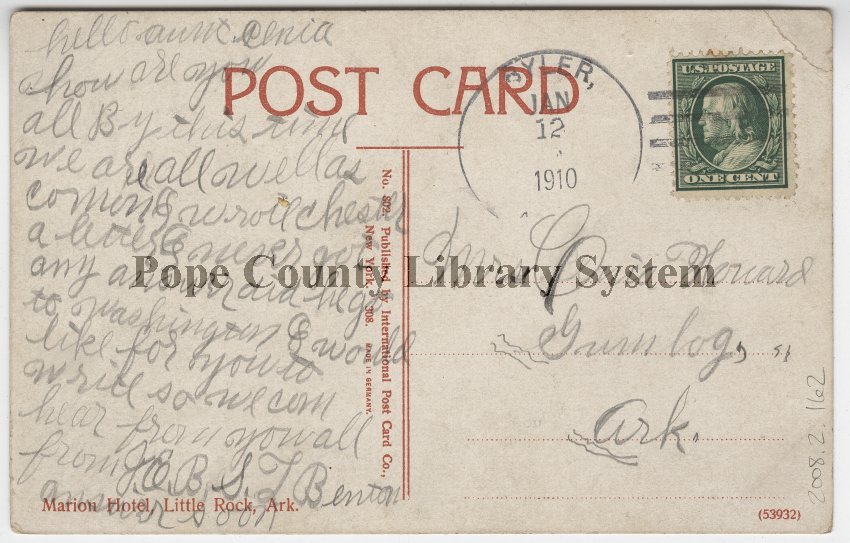 hello aunt cenia
show are you
all By this time
we are all well as
coming I wroll chester
a letter I never got
any answer did he go
to washington I would
like for you to
write so we can
hear from you all
from J.O.B.S.T Benton
answer soon
Marion Hotel, Little Rock, Ark.
POST CARD
No. 802. Published by International Post Card Co.,
New York. 308. MADE IN GERMANY.
BYLER,
JAN
12
1910
U.S. POSTAGE
ONE CENT
Mrs Cenia Howard
Gumlog,
Ark.
(53932)
2008.2.162
Pope County Library System